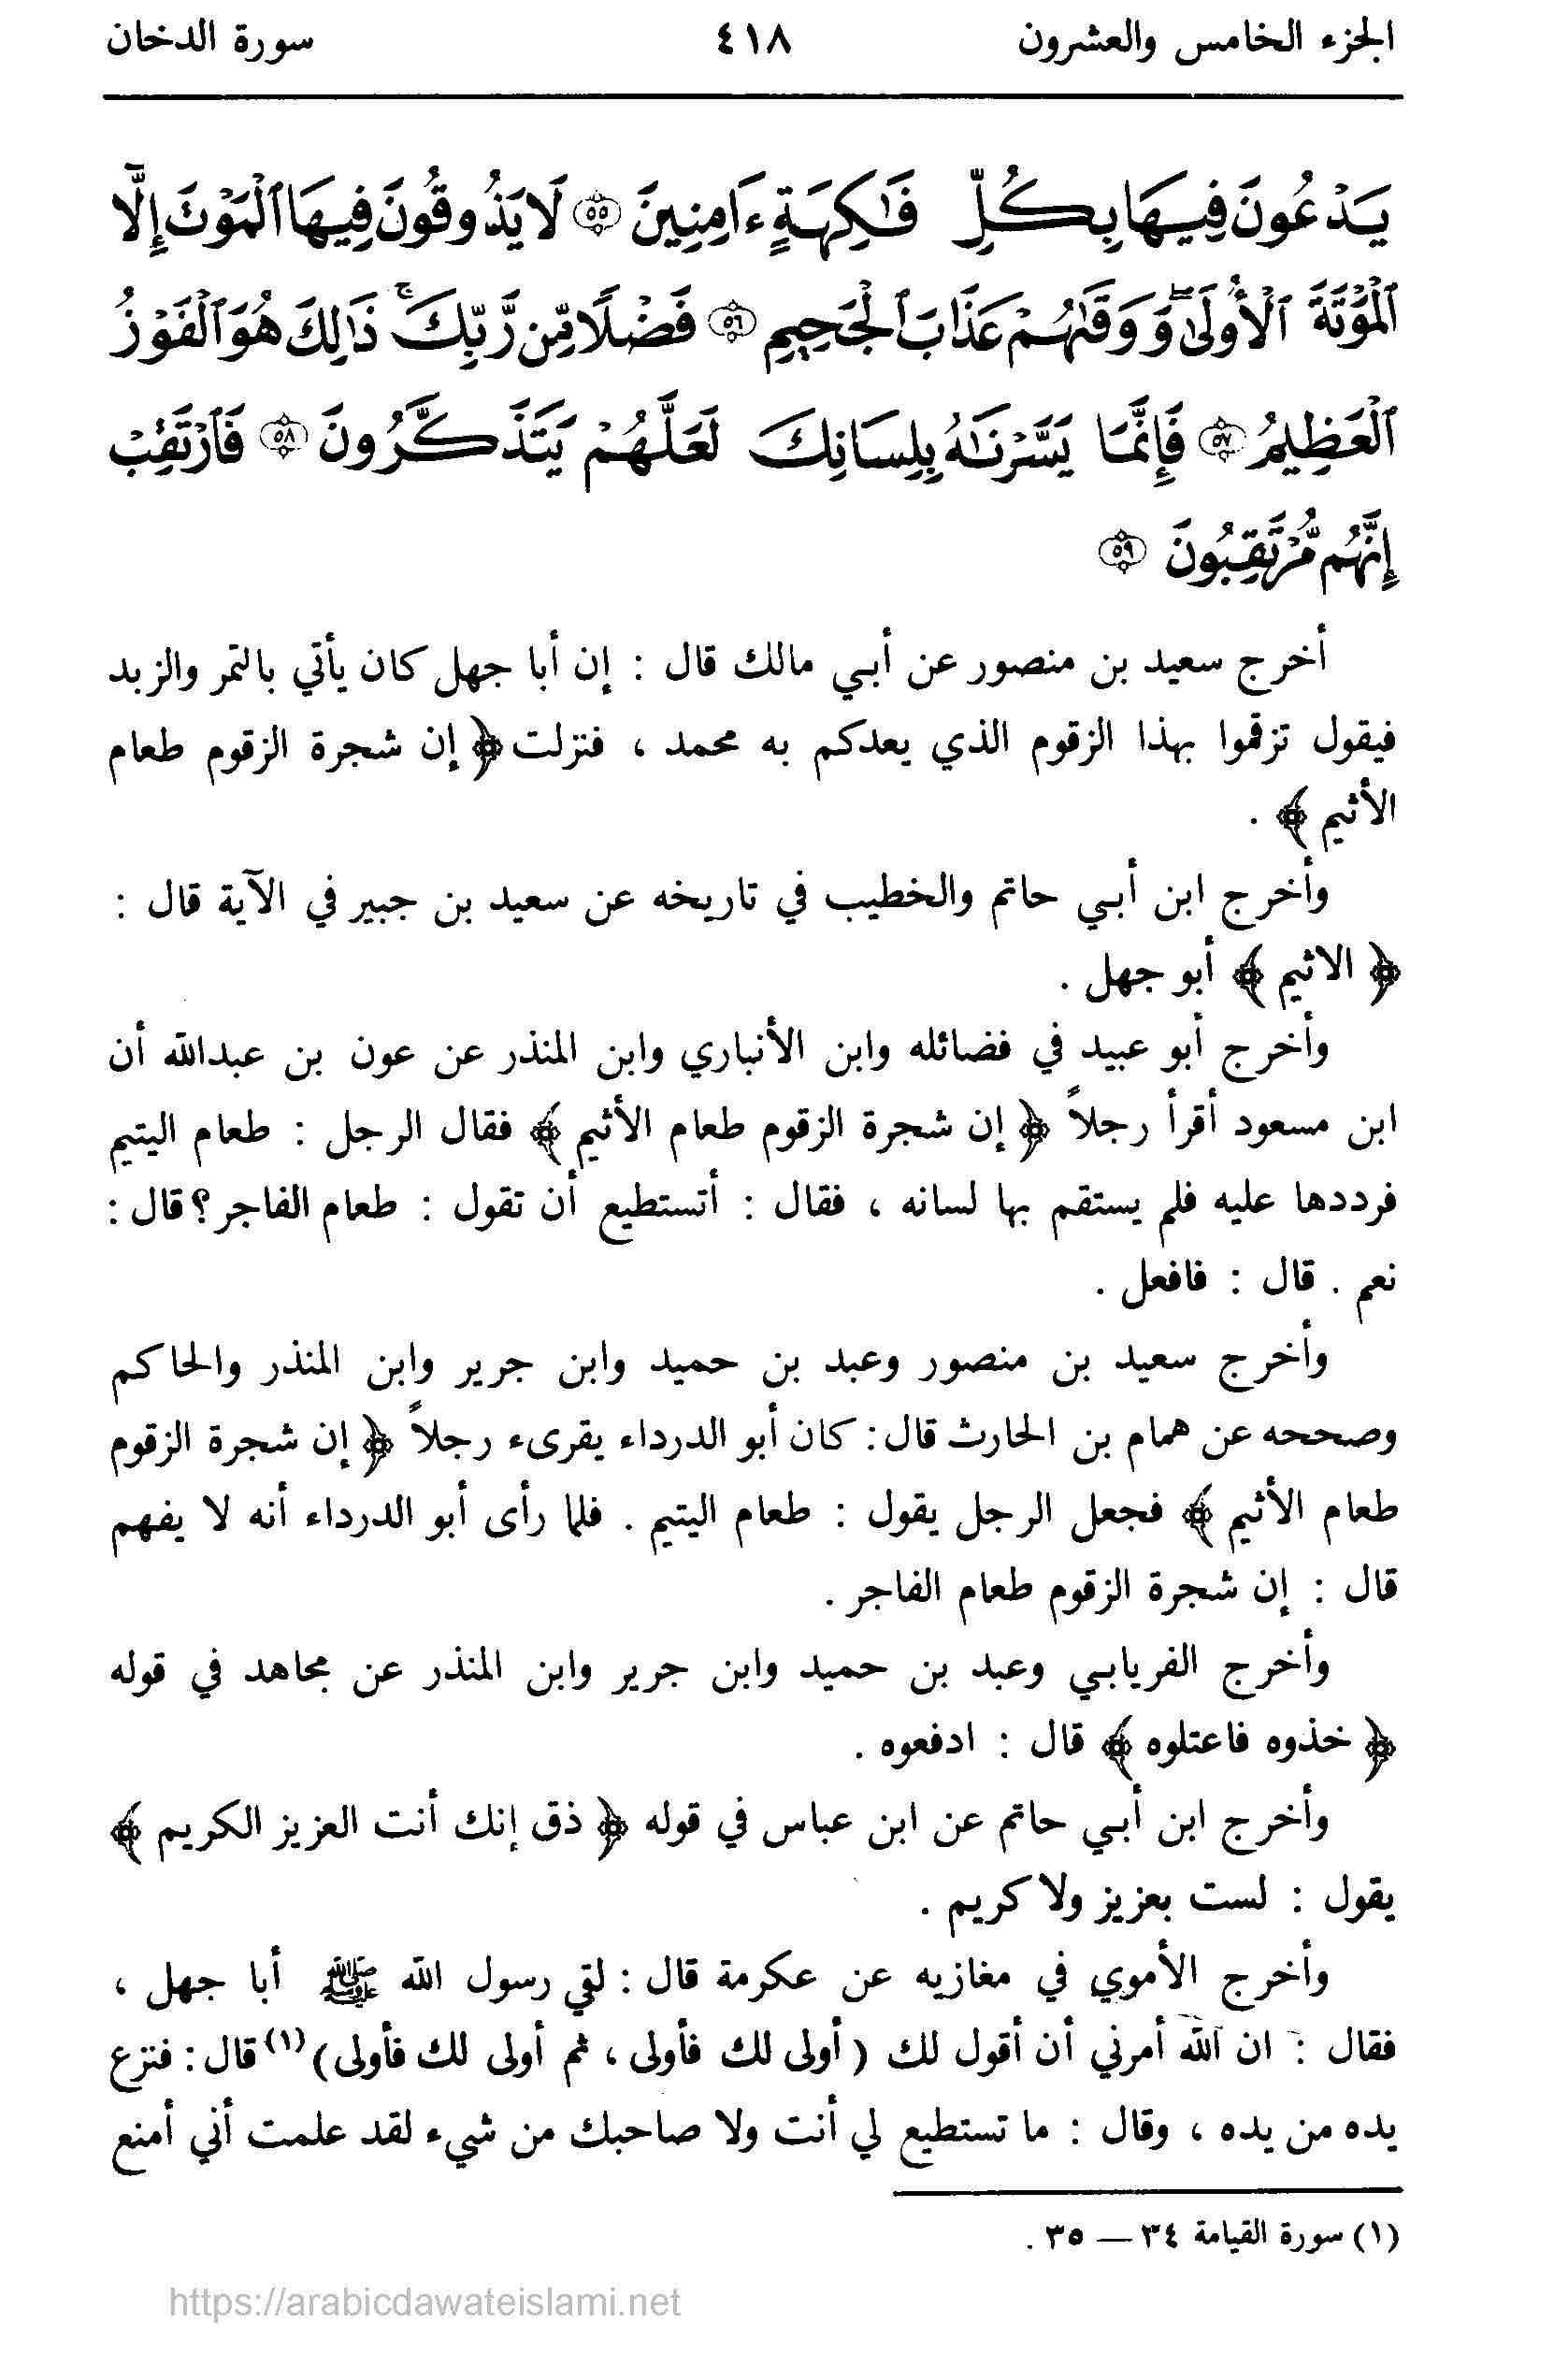 الجزء الخامس والعشرون ٤١٨ سورة الدخان
يَدْعُونَ فِيهَا بِكُلِّ فَٰكِهَةٍ ءَامِنِينَ ٥٥ لَا يَذُوقُونَ فِيهَا ٱلْمَوْتَ إِلَّا
ٱلْمَوْتَةَ ٱلْأُولَىٰ ۖ وَوَقَىٰهُمْ عَذَابَ ٱلْجَحِيمِ ٥٦ فَضْلًا مِّن رَّبِّكَ ۚ ذَٰلِكَ هُوَ ٱلْفَوْزُ
ٱلْعَظِيمُ ٥٧ فَإِنَّمَا يَسَّرْنَٰهُ بِلِسَانِكَ لَعَلَّهُمْ يَتَذَكَّرُونَ ٥٨ فَٱرْتَقِبْ
إِنَّهُم مُّرْتَقِبُونَ ٥٩
أخرج سعيد بن منصور عن أبي مالك قال : إن أبا جهل كان يأتي بالتمر والزبد
فيقول تزقموا بهذا الزقوم الذي يعدكم به محمد ، فنزلت ﴿ إن شجرة الزقوم طعام
الأثيم ﴾ .
وأخرج ابن أبي حاتم والخطيب في تاريخه عن سعيد بن جبير في الآية قال :
﴿ الاثيم ﴾ أبو جهل .
وأخرج أبو عبيد في فضائله وابن الأنباري وابن المنذر عن عون بن عبدالله أن
ابن مسعود أقرأ رجلاً ﴿ إن شجرة الزقوم طعام الأثيم ﴾ فقال الرجل : طعام اليتيم
فرددها عليه فلم يستقم بها لسانه ، فقال : أتستطيع أن تقول : طعام الفاجر ؟ قال :
نعم . قال : فافعل .
وأخرج سعيد بن منصور وعبد بن حميد وابن جرير وابن المنذر والحاكم
وصححه عن همام بن الحارث قال : كان أبو الدرداء يقرىء رجلاً ﴿ إن شجرة الزقوم
طعام الأثيم ﴾ فجعل الرجل يقول : طعام اليتيم . فلما رأى أبو الدرداء أنه لا يفهم
قال : إن شجرة الزقوم طعام الفاجر .
وأخرج الفريابي وعبد بن حميد وابن جرير وابن المنذر عن مجاهد في قوله
﴿ خذوه فاعتلوه ﴾ قال : ادفعوه .
وأخرج ابن أبي حاتم عن ابن عباس في قوله ﴿ ذق إنك أنت العزيز الكريم ﴾
يقول : لست بعزيز ولا كريم .
وأخرج الأموي في مغازيه عن عكرمة قال : لقي رسول الله ﷺ أبا جهل ،
فقال : ان الله أمرني أن أقول لك ( أولى لك فأولى ، ثم أولى لك فأولى ) (١) قال : فنزع
يده من يده ، وقال : ما تستطيع لي أنت ولا صاحبك من شيء لقد علمت أني أمنع
(١) سورة القيامة ٣٤ — ٣٥ .
https://arabicdawateislami.net